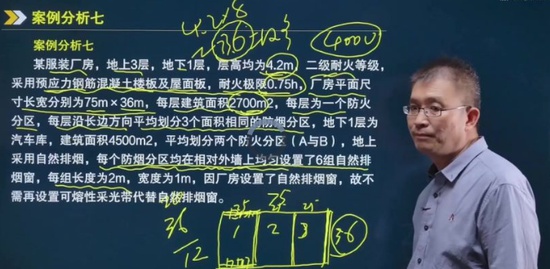 案例分析七
案例分析七
某服装厂房，地上3层，地下1层，层高均为4.2m，二级耐火等级，
采用预应力钢筋混凝土楼板及屋面板，耐火极限0.75h，厂房平面尺
寸长宽分别为75m×36m，每层建筑面积2700m2，每层为一个防火
分区，每层沿长边方向平均划分3个面积相同的防烟分区，地下1层为
汽车库，建筑面积4500m2，平均划分两个防火分区（A与B），地上
采用自然排烟，每个防烟分区均在相对外墙上均匀设置了6组自然排
烟窗，每组长度为2m，宽度为1m，因厂房设置了自然排烟，故不
需再设置可熔性采光带代替自然排烟窗。
36
12
1 2 3
36